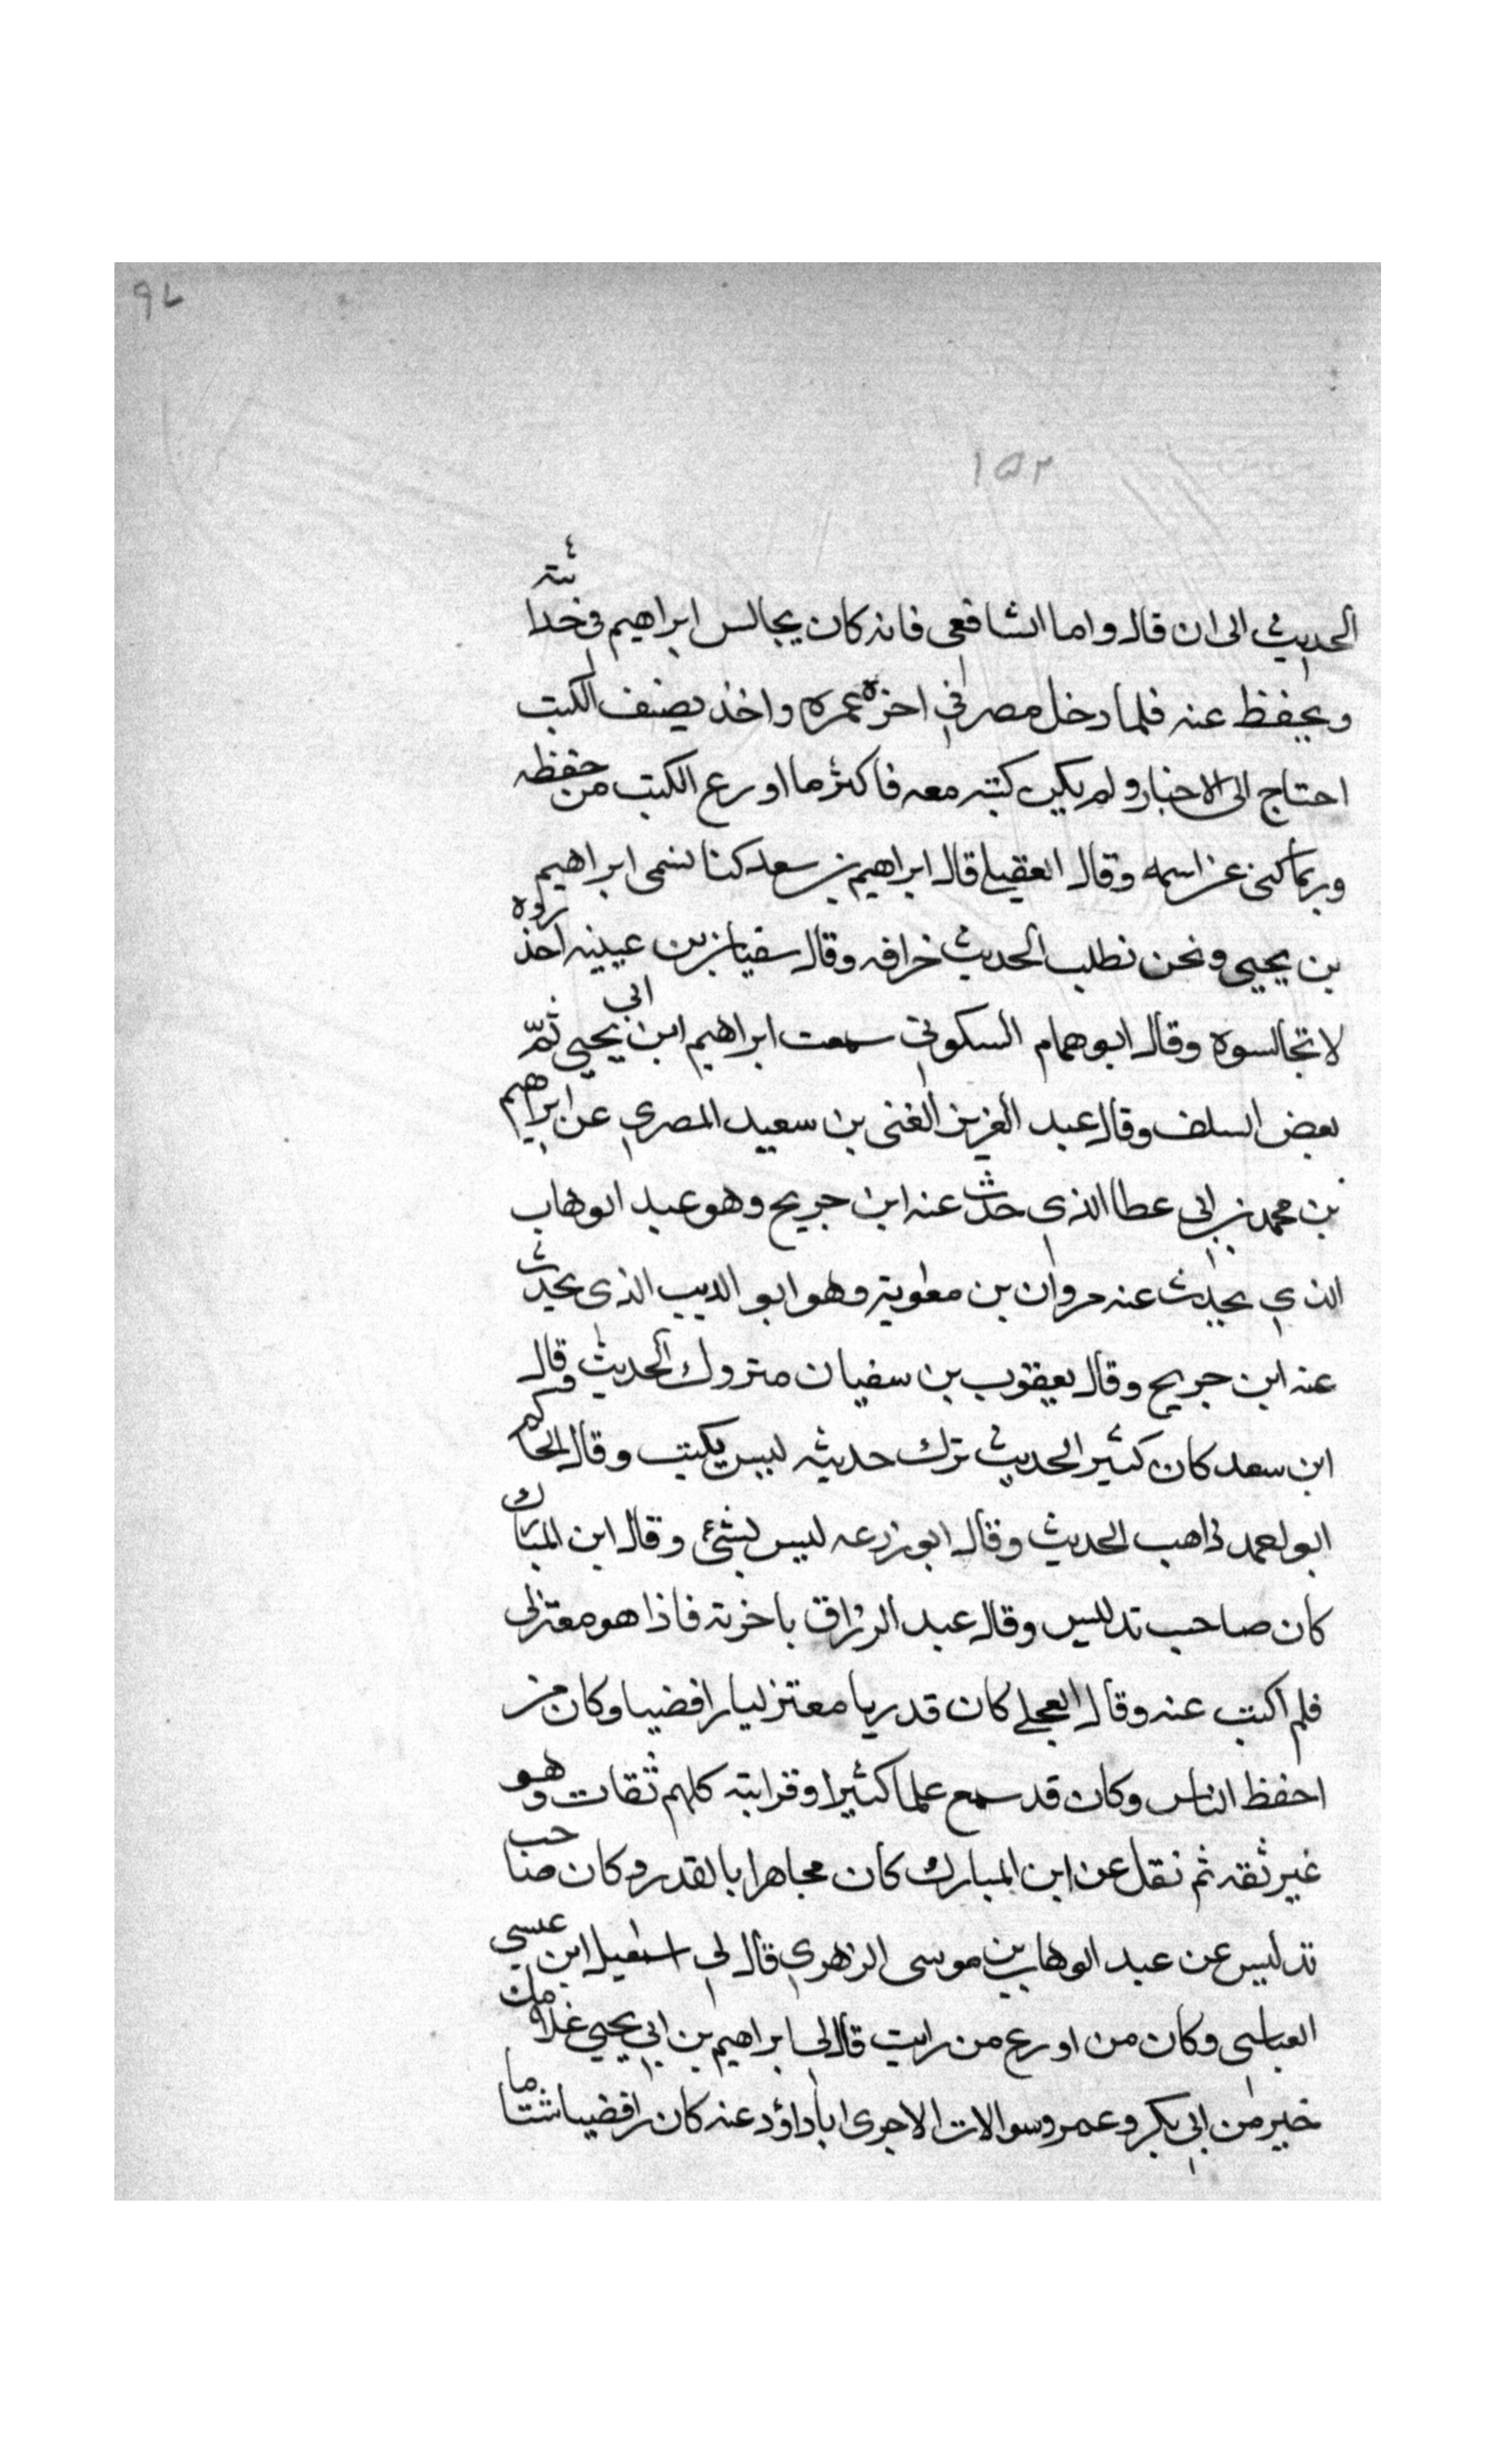 ٩٧
١٥٢
الحديث الى ان قال واما الشافعى فانه كان يجالس ابراهيم فى حداثته
ويحفظ عنه فلما دخل مصر فى اخرة عمره واخذ يصنف الكتب
احتاج الى الاخبار ولم يكن كتبه معه فاكثر ما اورع الكتب من حفظه
وربما كنى عن اسمه وقال العقيلى قال ابراهيم بن سعد كنا نسمى ابراهيم
بن يحيى ونحن نطلب الحديث خرافه وقال سفيان بن عيينه احذروه
لا تجالسوه وقال ابو همام السكونى سمعت ابراهيم ابن ابى يحيى
بعض السلف وقال عبد العزيز الغنى بن سعيد المصرى عن ابراهيم
بن محمد بن ابى عطا الذى حدث عنه ابن جريج وهو عبد الوهاب
الذى يحدث عنه مروان بن معٰوية وهو ابو الديب الذى يحدث
عنه ابن جريج وقال يعقوب بن سفيان متروك الحديث وقال
ابن سعد كان كثير الحديث ترك حديثه ليس يكتب وقال الحاكم
ابو احمد ذاهب الحديث وقال ابو زرعه ليس بشئ وقال ابن المبارك
كان صاحب تدليس وقال عبد الرزاق فاذا هو معتزلى
فلم اكتب عنه وقال العجلى كان قدريا معتزليا رافضيا وكان من
احفظ الناس وكان قد سمع علما كثيرا وقرابته كلهم ثقات وهو
غير ثقه ثم نقل عن ابن المبارك كان مجاهرا بالقدر وكان صاحب
تدليس عن عبد الوهاب بن موسى الزهرى قال لى اسمٰعيل ابن عيسى
العباسى وكان من اورع من رايت قال لى ابراهيم بن ابى يحيى غلامك
خير من ابى بكر وعمر وسوالات الاجرى ابا داؤد عنه كان رافضيا شتاما